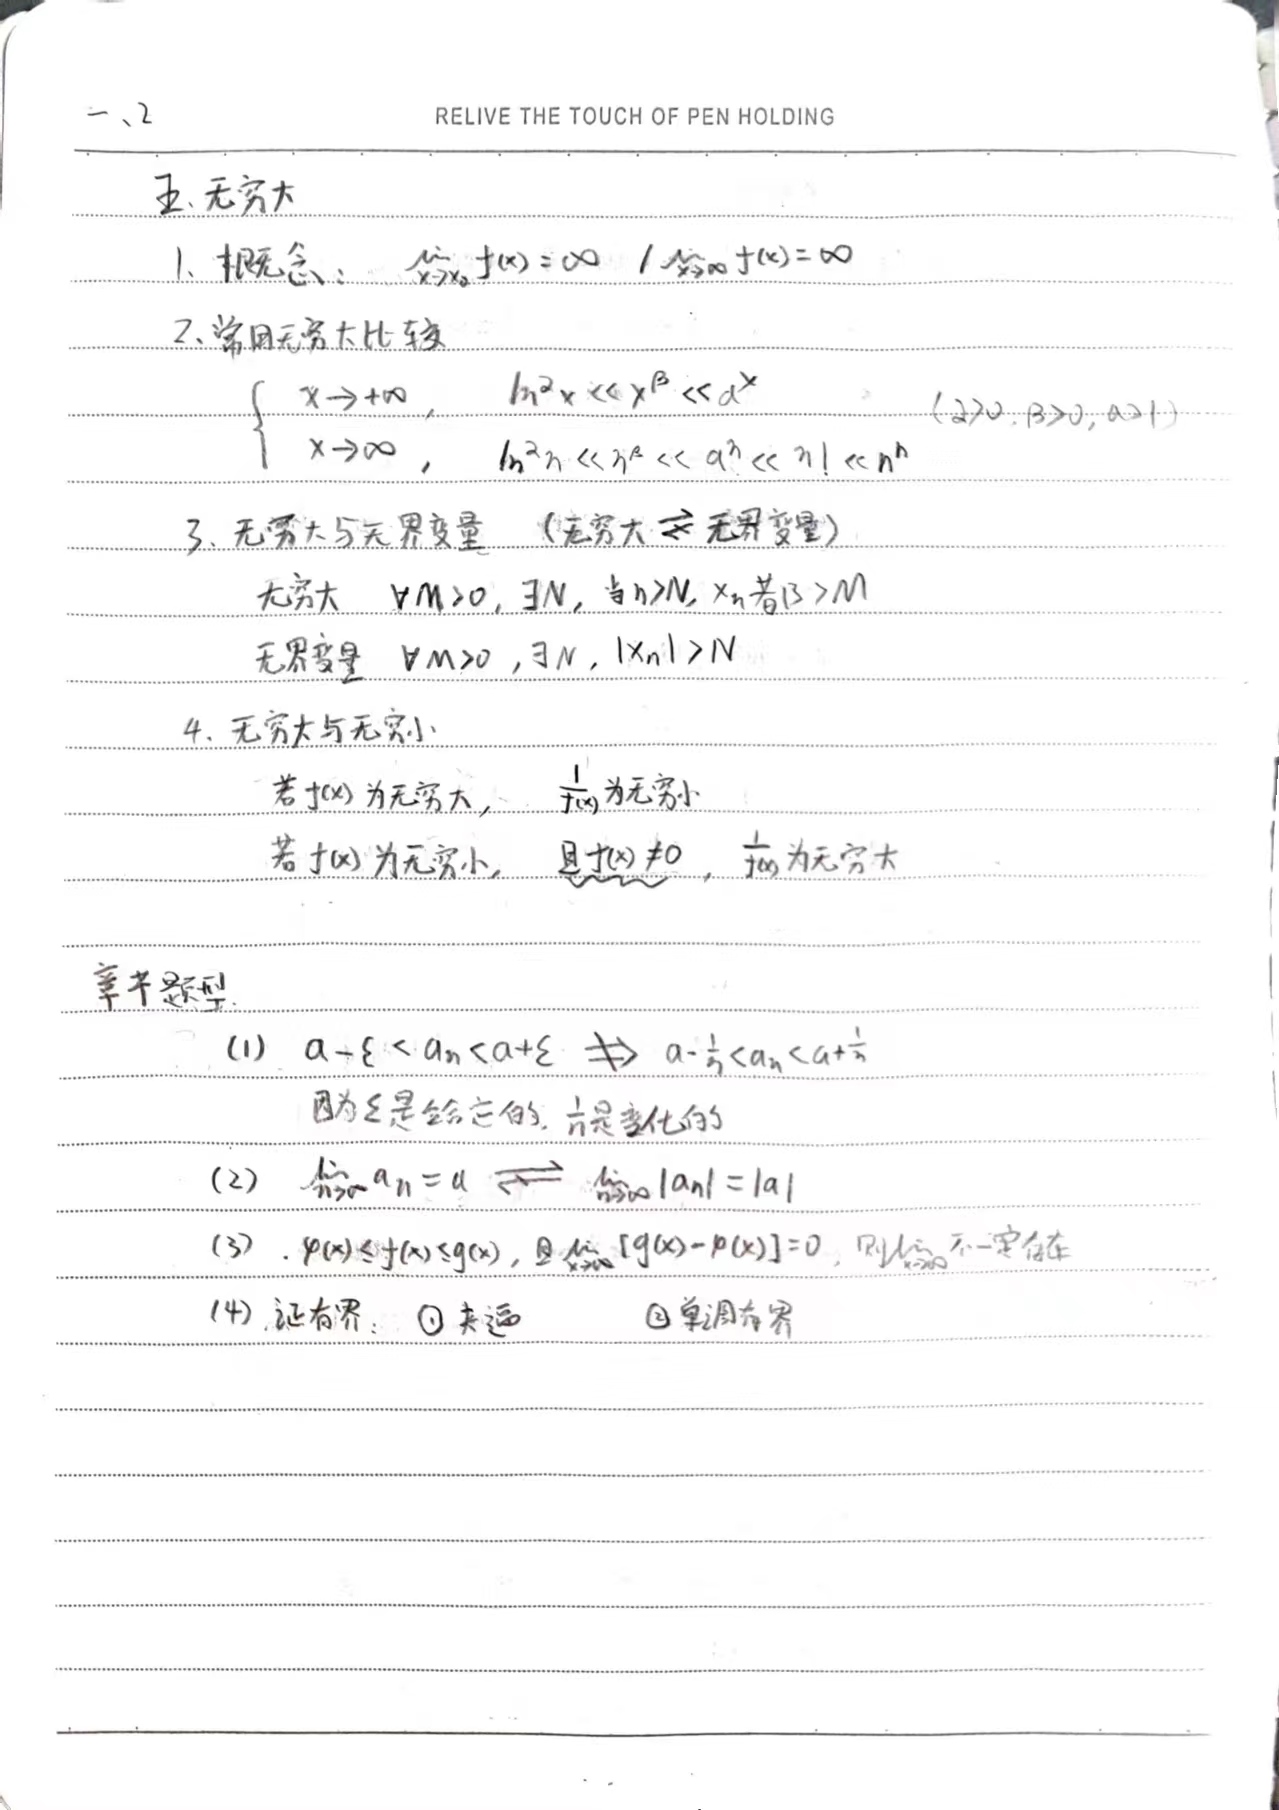 一、2
RELIVE THE TOUCH OF PEN HOLDING
五. 无穷大
1. 概念: lim x→x₀ f(x)=∞ / lim x→∞ f(x)=∞
2. 常用无穷大比较
x→+∞, lnᵅx << x^β << aˣ (α>0, β>0, a>1)
x→∞, lnᵅn << n^β << aⁿ << n! << nⁿ
3. 无穷大与无界变量 (无穷大 ⇄ 无界变量)
无穷大 ∀M>0, ∃N, 当n>N, xₙ都>M
无界变量 ∀M>0, ∃N, |xₙ|>N
4. 无穷大与无穷小
若f(x)为无穷大, 1/f(x)为无穷小
若f(x)为无穷小, 且f(x)≠0, 1/f(x)为无穷大
章节题型.
(1) a-ε<aₙ<a+ε ⇏ a-1/n<aₙ<a+1/n
因为ε是给定的. 1/n是变化的
(2) lim n→∞ aₙ=a ⇄ lim n→∞ |aₙ|=|a|
(3) φ(x)≤f(x)≤g(x), 且lim x→∞ [g(x)-φ(x)]=0, 则lim x→∞ 不一定存在
(4) 证有界: ①夹逼 ②单调有界